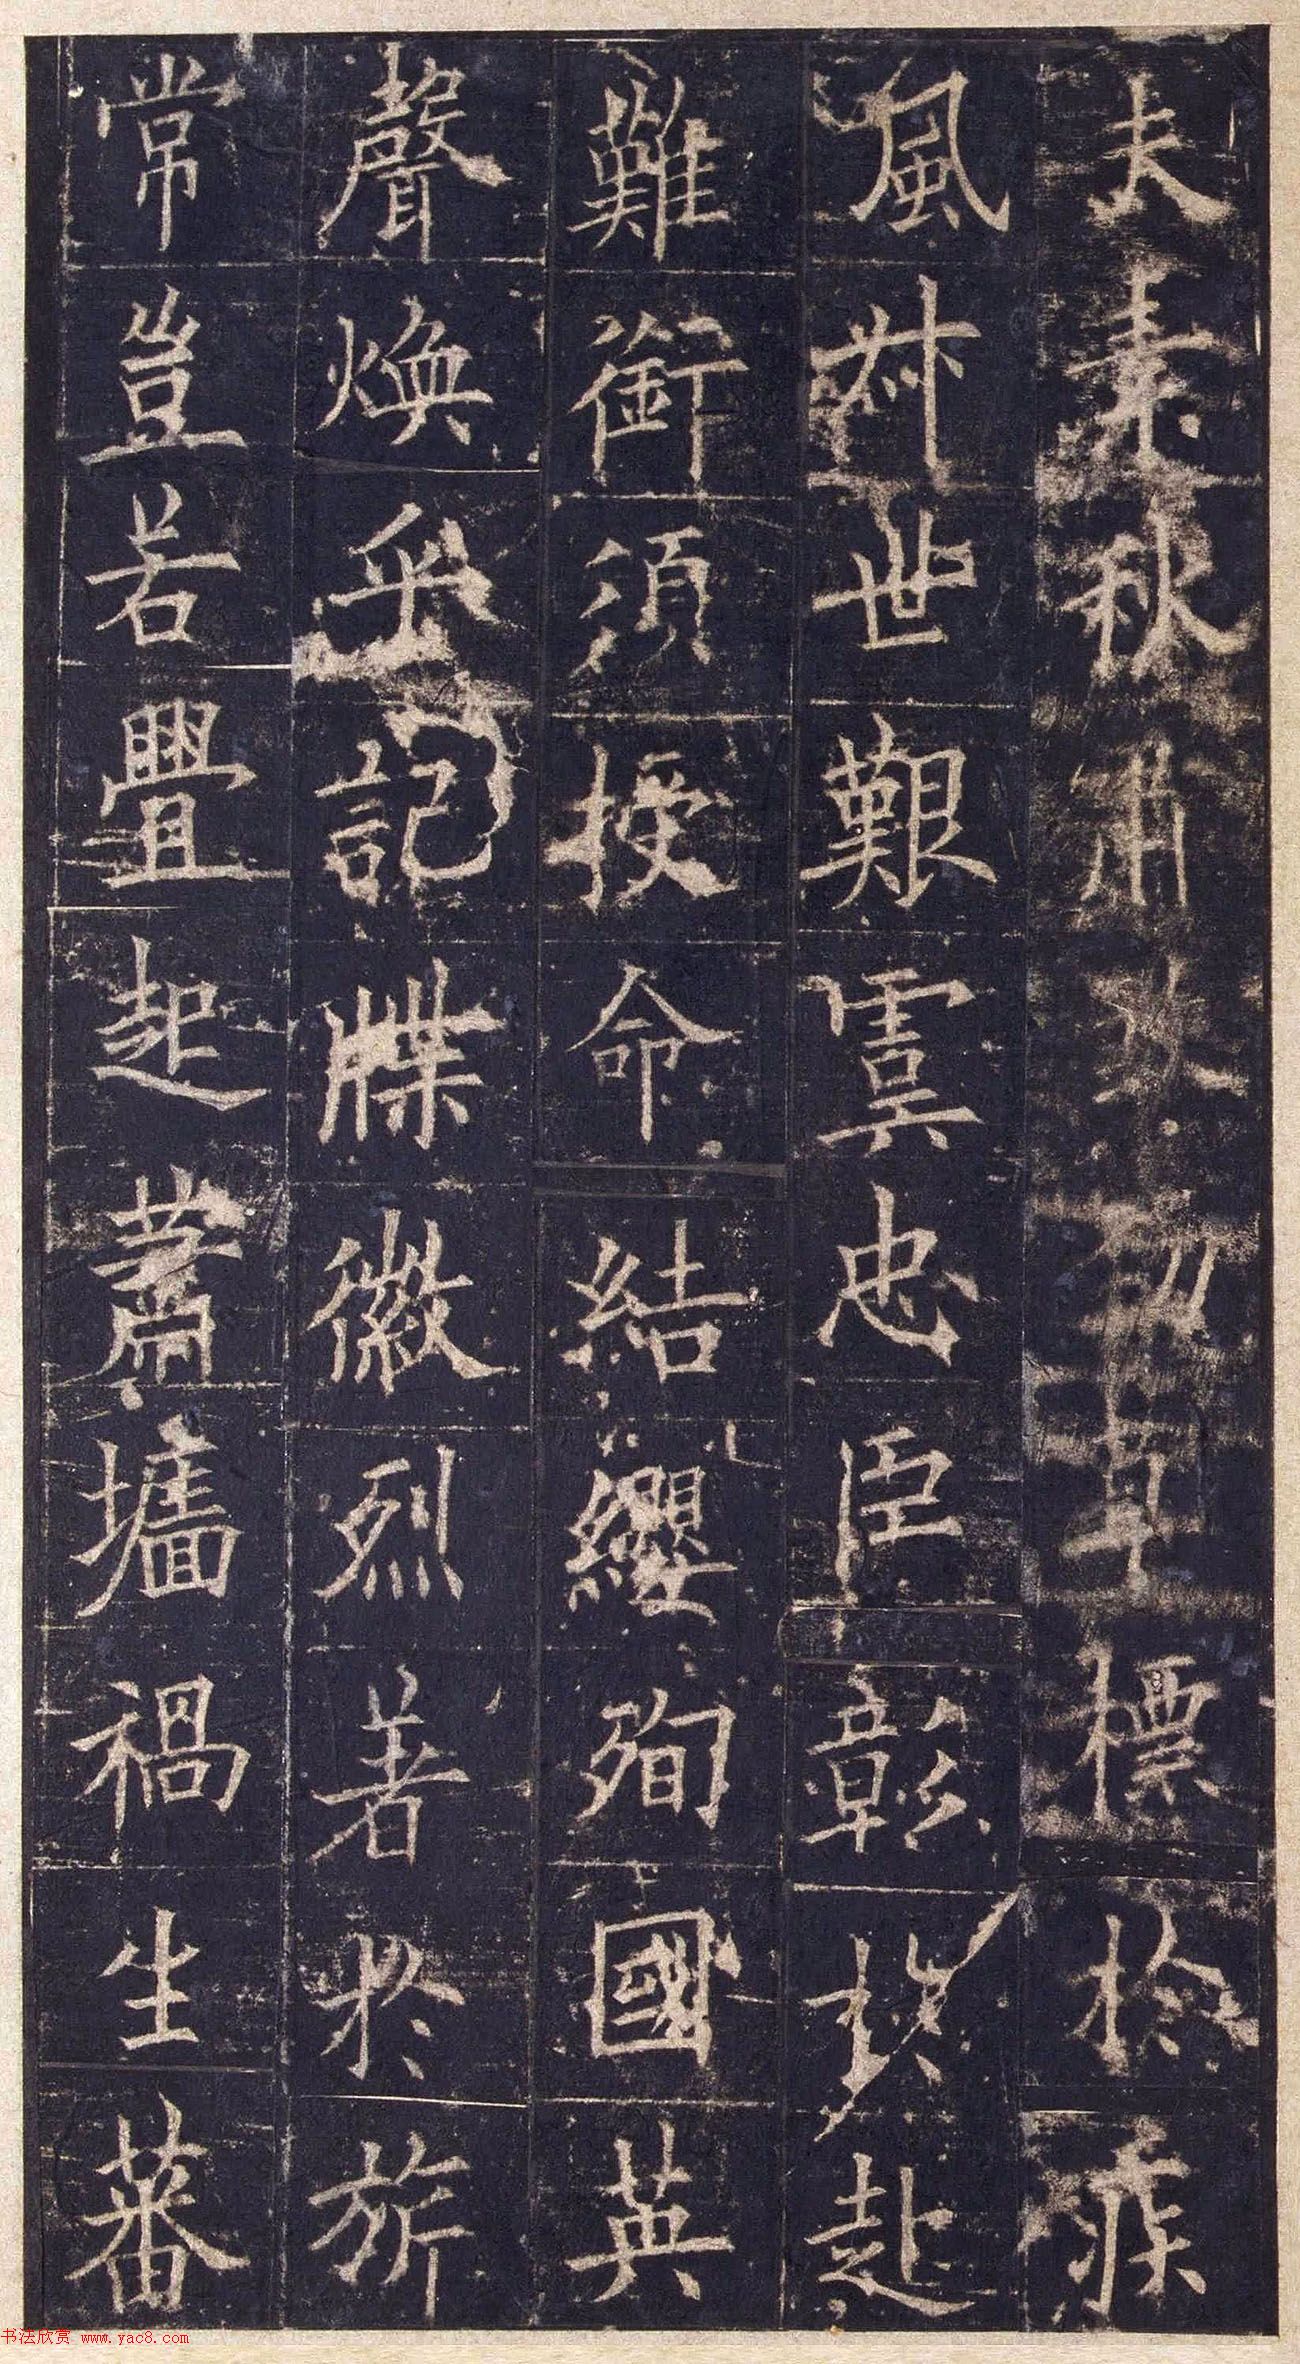 夫素秋肅煞勁草標於疾
風叔世艱虞忠臣彰於赴
難銜須授命結纓殉國英
聲煥乎記牒徽烈著於旂
常豈若舋起蕭墻禍生蕃
书法欣赏 www.yac8.com